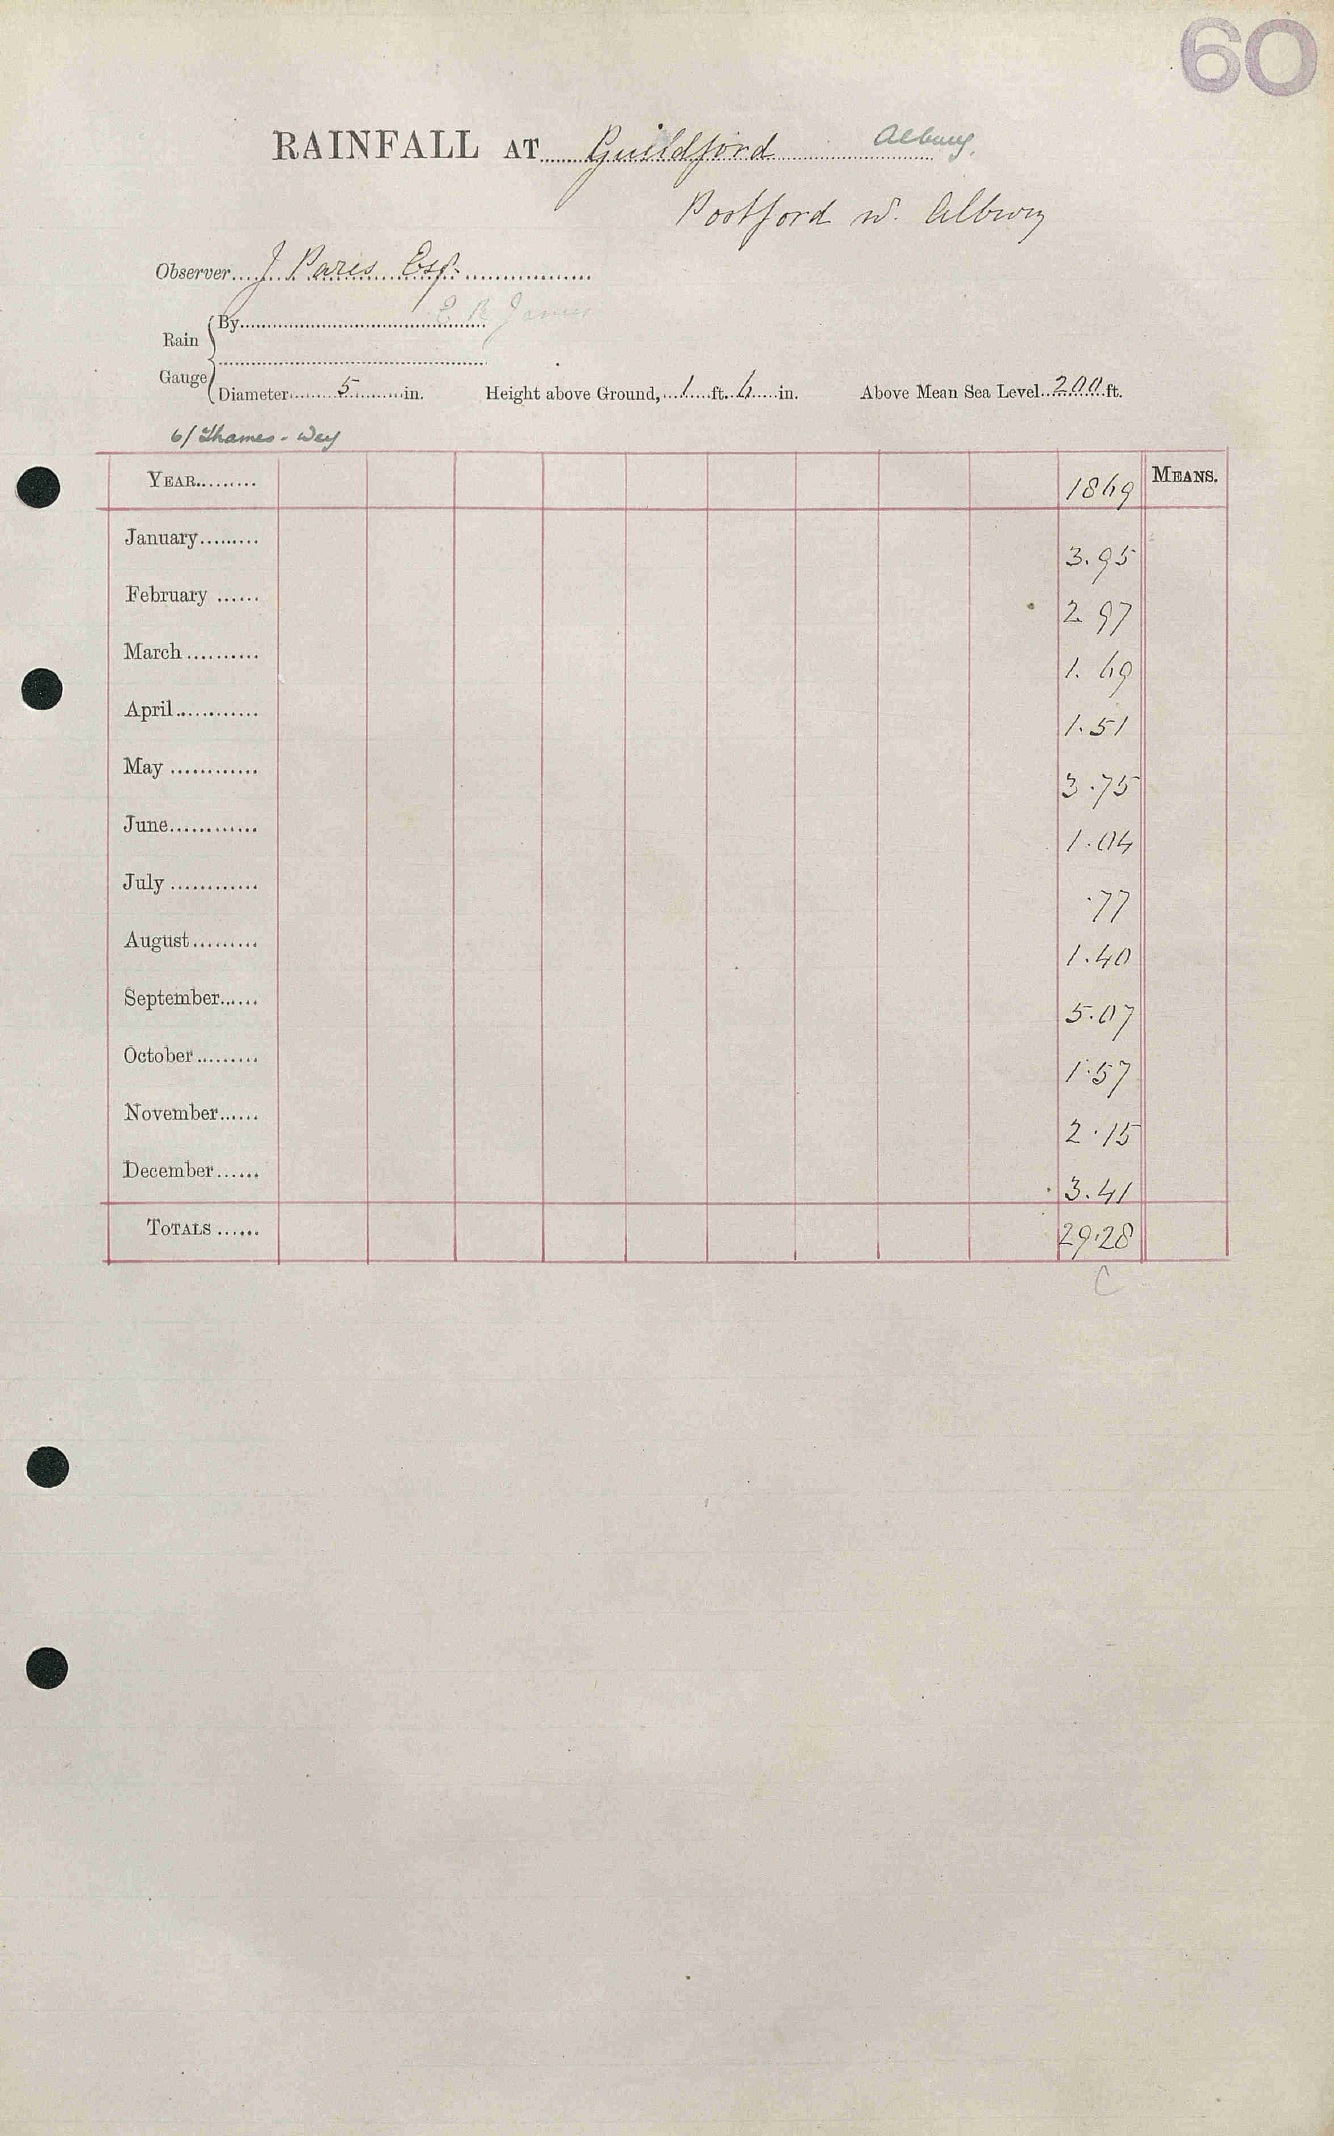 60
RAINFALL AT Guildford Albury.
Postford nr. Albury
Observer J Pares Esq.
Rain Gauge By
Diameter 5 in. Height above Ground, 1 ft. 6 in. Above Mean Sea Level 200 ft.
6/ Thames - Wey
YEAR 1869 MEANS.
January 3.95
February 2 97
March 1. 69
April 1.51
May 3.75
June 1.04
July .77
August 1.40
September 5.07
October 1.57
November 2.15
December 3.41
TOTALS 29.28
C